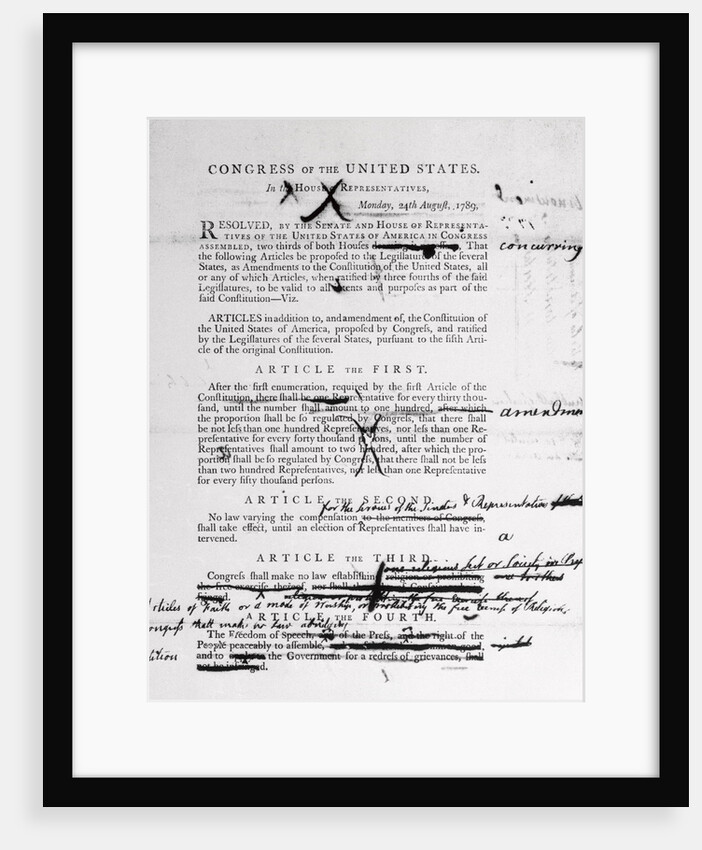 CONGRESS OF THE UNITED STATES.
In the HOUSE of REPRESENTATIVES,
Monday, 24th Auguſt, 1789,
RESOLVED, BY THE SENATE AND HOUSE OF REPRESENTA-
TIVES OF THE UNITED STATES OF AMERICA IN CONGRESS
ASSEMBLED, two thirds of both Houſes That concurring
the following Articles be propoſed to the Legiſlatures of the ſeveral
States, as Amendments to the Conſtitution of the United States, all
or any of which Articles, when ratified by three fourths of the ſaid
Legiſlatures, to be valid to all intents and purpoſes as part of the
ſaid Conſtitution—Viz.
ARTICLES in addition to, and amendment of, the Conſtitution of
the United States of America, propoſed by Congreſs, and ratified
by the Legiſlatures of the ſeveral States, purſuant to the fifth Arti-
cle of the original Conſtitution.
ARTICLE THE FIRST.
After the firſt enumeration, required by the firſt Article of the
Conſtitution, there ſhall be one Repreſentative for every thirty thou-
ſand, until the number ſhall amount to one hundred, after which amendmen
the proportion ſhall be ſo regulated by Congreſs, that there ſhall
be not leſs than one hundred Repreſentatives, nor leſs than one Re-
preſentative for every forty thouſand perſons, until the number of
Repreſentatives ſhall amount to two hundred, after which the pro-
portion ſhall be ſo regulated by Congreſs, that there ſhall not be leſs
than two hundred Repreſentatives, nor leſs than one Repreſentative
for every fifty thouſand perſons.
ARTICLE THE SECOND.
for the services of the Senators & Representatives
No law varying the compenſation to the members of Congreſs,
ſhall take effect, until an election of Repreſentatives ſhall have in- a
tervened.
ARTICLE THE THIRD.
one religious Sect or Society in
Congreſs ſhall make no law eſtabliſhing religion or prohibiting
the free exerciſe thereof, nor ſhall the
fringed.
rticles of Faith or a mode of Worship, or prohibiting the free exercise of Religion,
ARTICLE THE FOURTH.
ongress shall make no law abridging
The Freedom of Speech, of the Preſs, and the right of the
People peaceably to aſſemble,
tition and to the Government for a redreſs of grievances, ſhall
not be infringed.